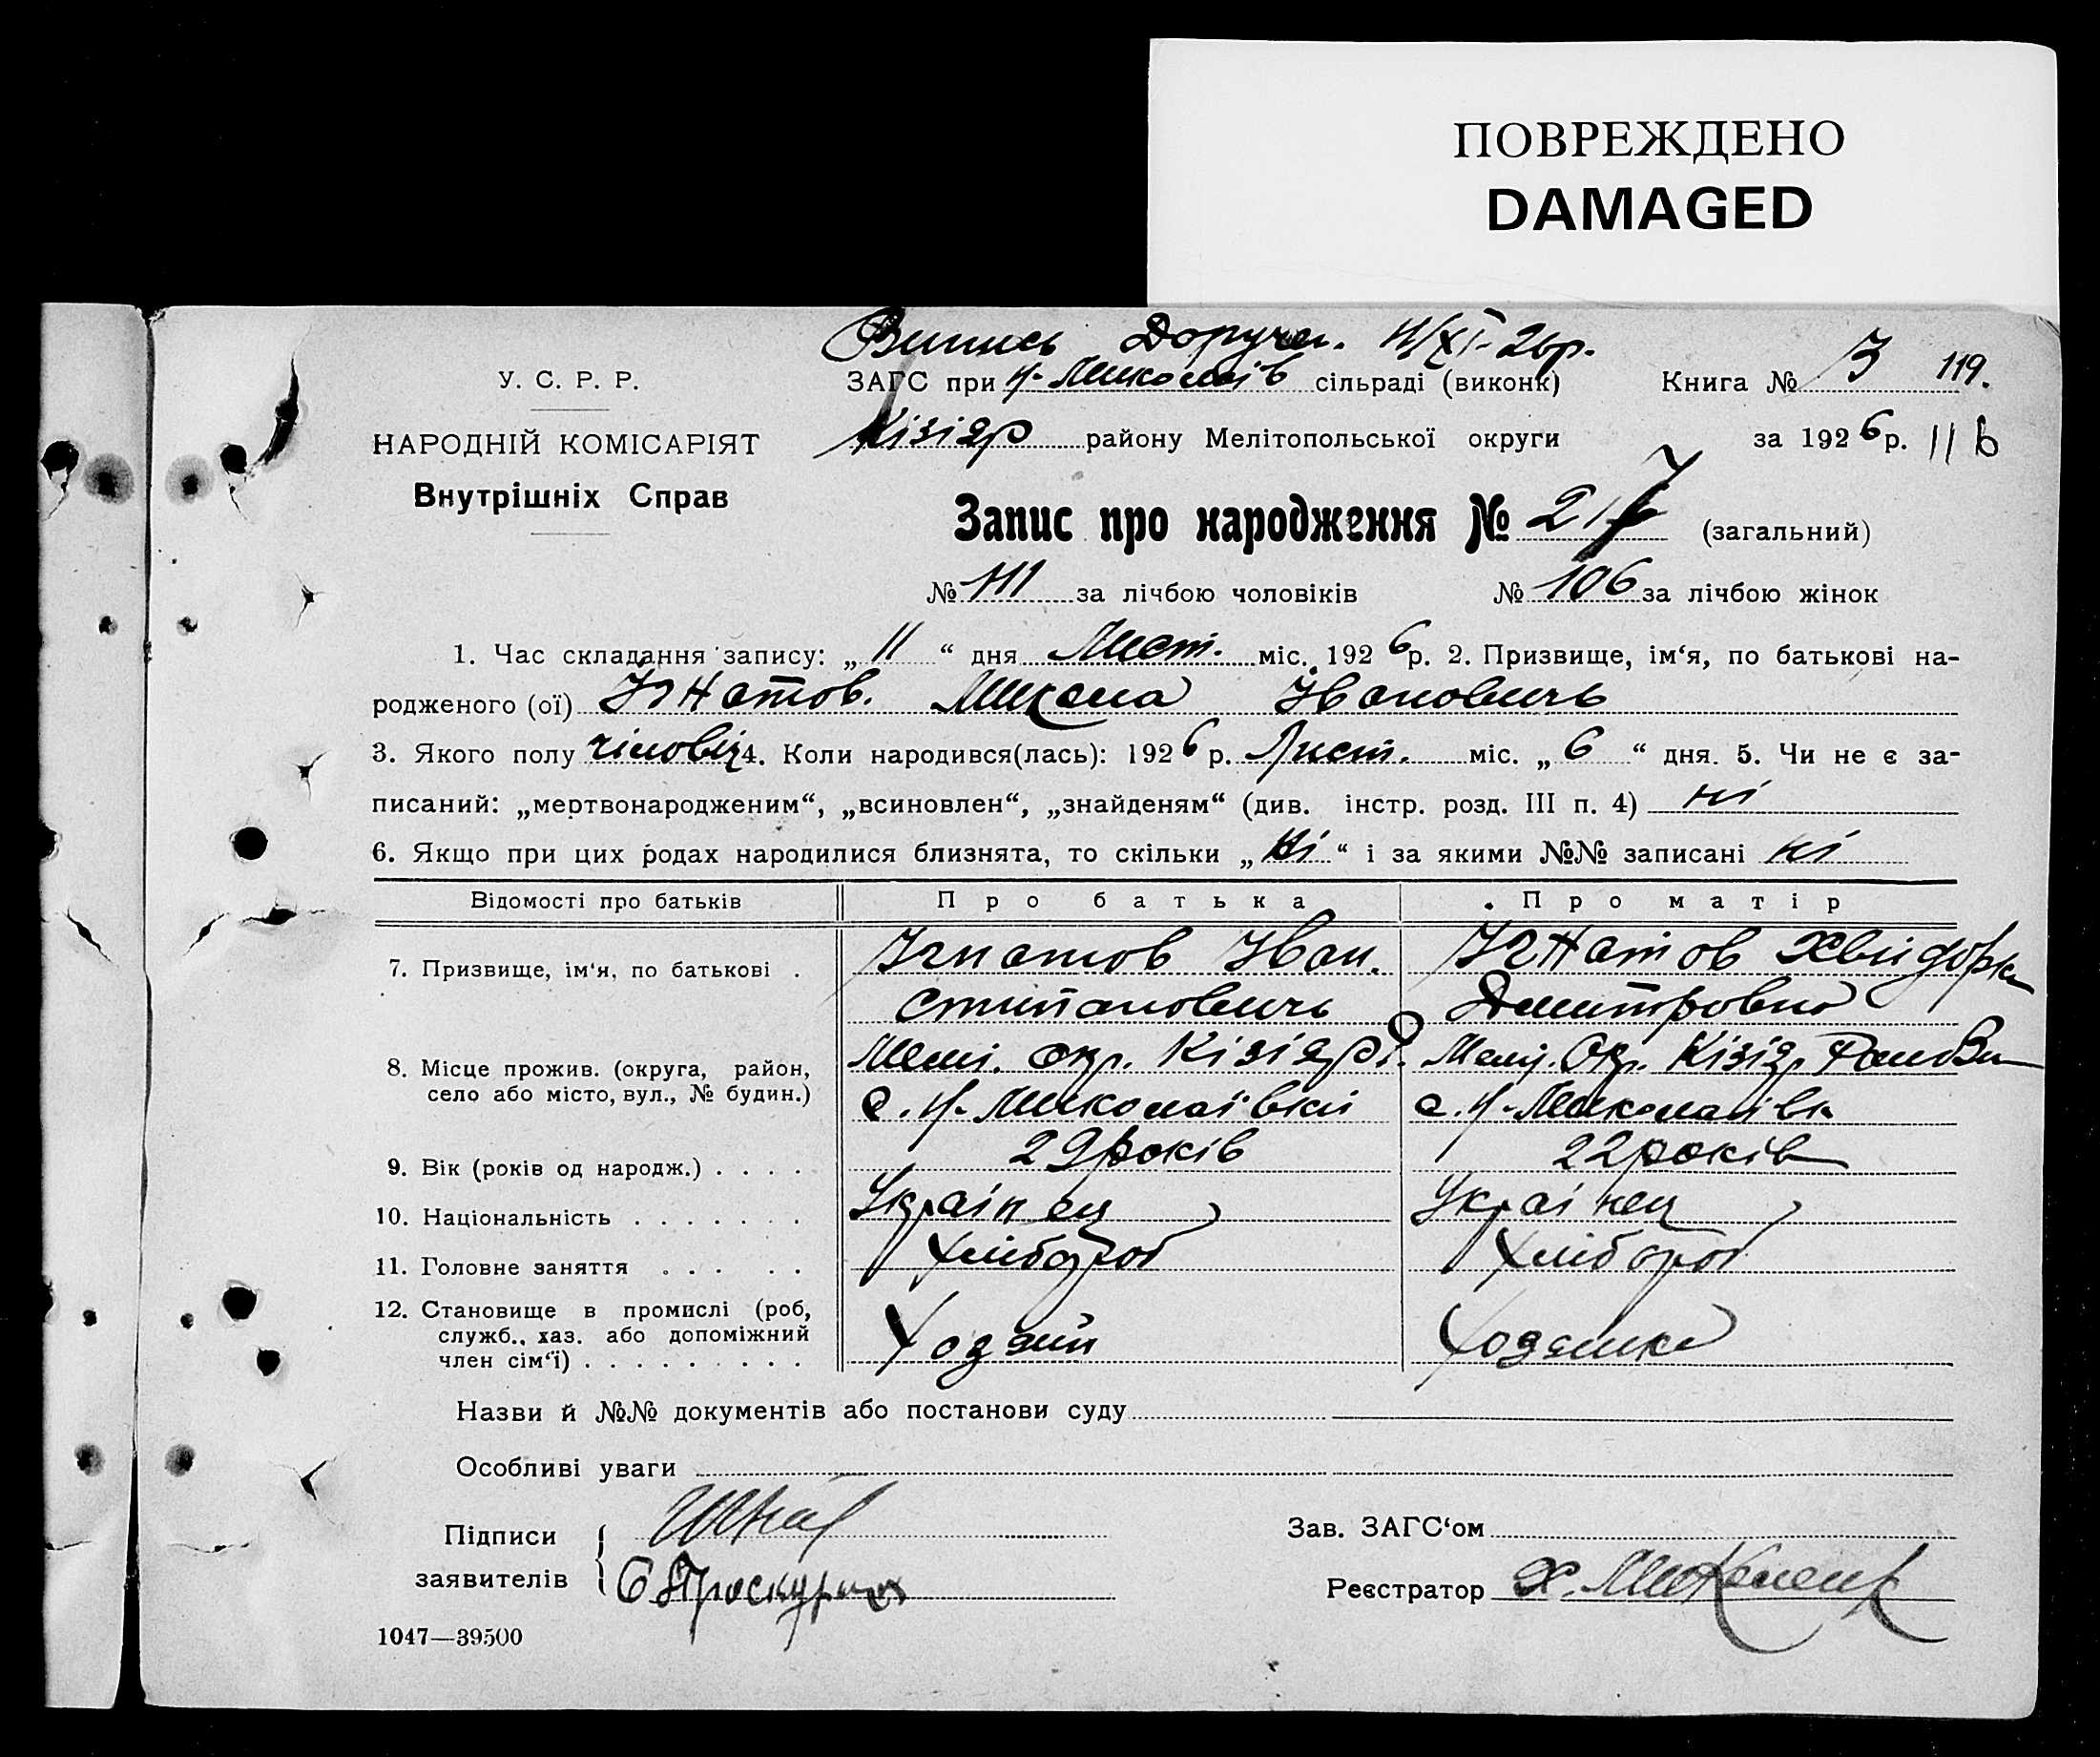 ПОВРЕЖДЕНО
DAMAGED
Випись Доруче. 11/XI-26р.
У. С. Р. Р.
ЗАГС при Н-Миколаїв сільраді (виконк) Книга № 3 119.
НАРОДНІЙ КОМІСАРІЯТ
Кізіяр району Мелітопольської округи за 1926р. 116
Внутрішніх Справ
Запис про народження № 217 (загальний)
№ 111 за лічбою чоловіків № 106 за лічбою жінок
1. Час складання запису: „ 11 “ дня Лист. міс. 1926р. 2. Призвище, ім‘я, по батькові на-
родженого (ої) Ігнатов. Микола Івановичь
3. Якого полу чіловіч 4. Коли народився(лась): 1926р. Лист. міс. „ 6 “ дня. 5. Чи не є за-
писаний: „мертвонародженим“, „всиновлен“, „знайденям“ (див. інстр. розд. III п. 4) ні
6. Якщо при цих родах народилися близнята, то скільки „ ні “ і за якими №№ записані ні
Відомості про батьків Про батька Про матір
7. Призвище, ім‘я, по батькові . Ігнатов Іван. Ігнатов Хвидорка
Стипановичь Дмитровна
8. Місце прожив. (округа, район, село або місто, вул., № будин.) Мелі. окр. Кізіяр. Р. Меліт. Окр. Кізіяр
с. Н-Миколаївки с. Н-Миколаївк
9. Вік (років од народж.) . . . . 29 років 22 років
10. Національність . . . . . . . Українец Українец
11. Головне заняття . . . . . Хлібороб Хлібороб
12. Становище в промислі (роб, служб., хаз. або допоміжний член сім‘ї) . . . . . . . . . Ходзяин Ходзяика
Назви й №№ документів або постанови суду
Особливі уваги
Підписи Зав. ЗАГС‘ом
заявителів С Проскурин Реєстратор Х.
1047—39500